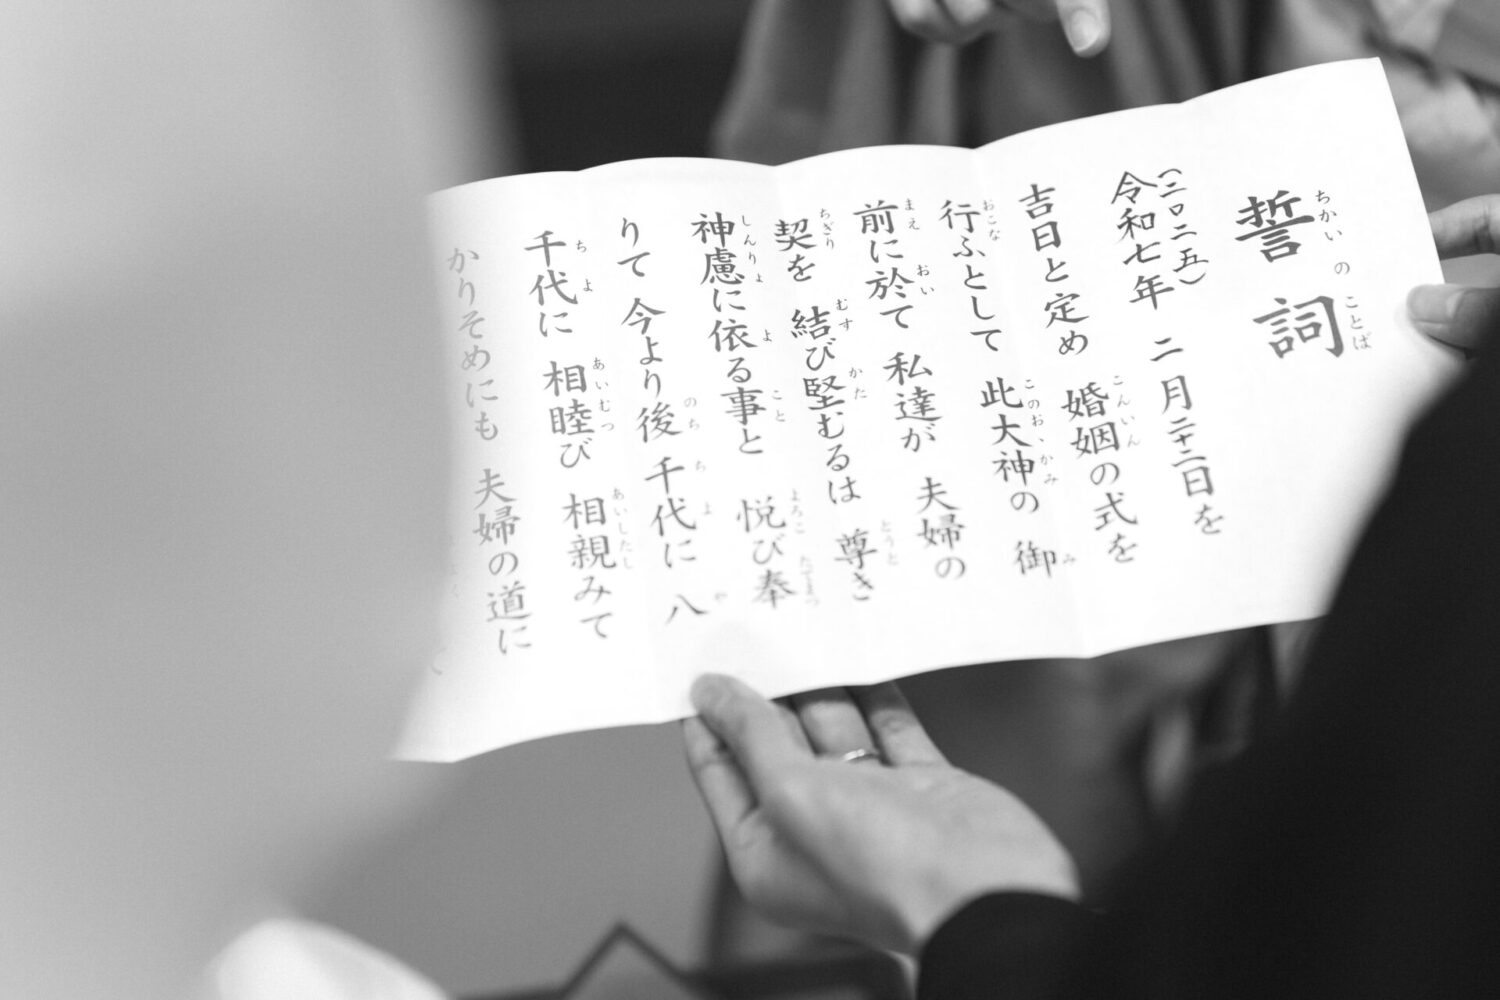 誓詞
ちかいのことば
(二〇二五)
令和七年 二月二十二日を
吉日と定め 婚姻の式を
こんいん
行ふとして 此大神の 御
おこな このおゝかみ み
前に於て 私達が 夫婦の
まえ おい
契を 結び堅むるは 尊き
ちぎり むす かた とうと
神慮に依る事と 悦び奉
しんりょ よ こと よろこ たてまつ
りて 今より後 千代に 八
のち ちよ や
千代に 相睦び 相親みて
ちよ あいむつ あいしたし
かりそめにも 夫婦の道に